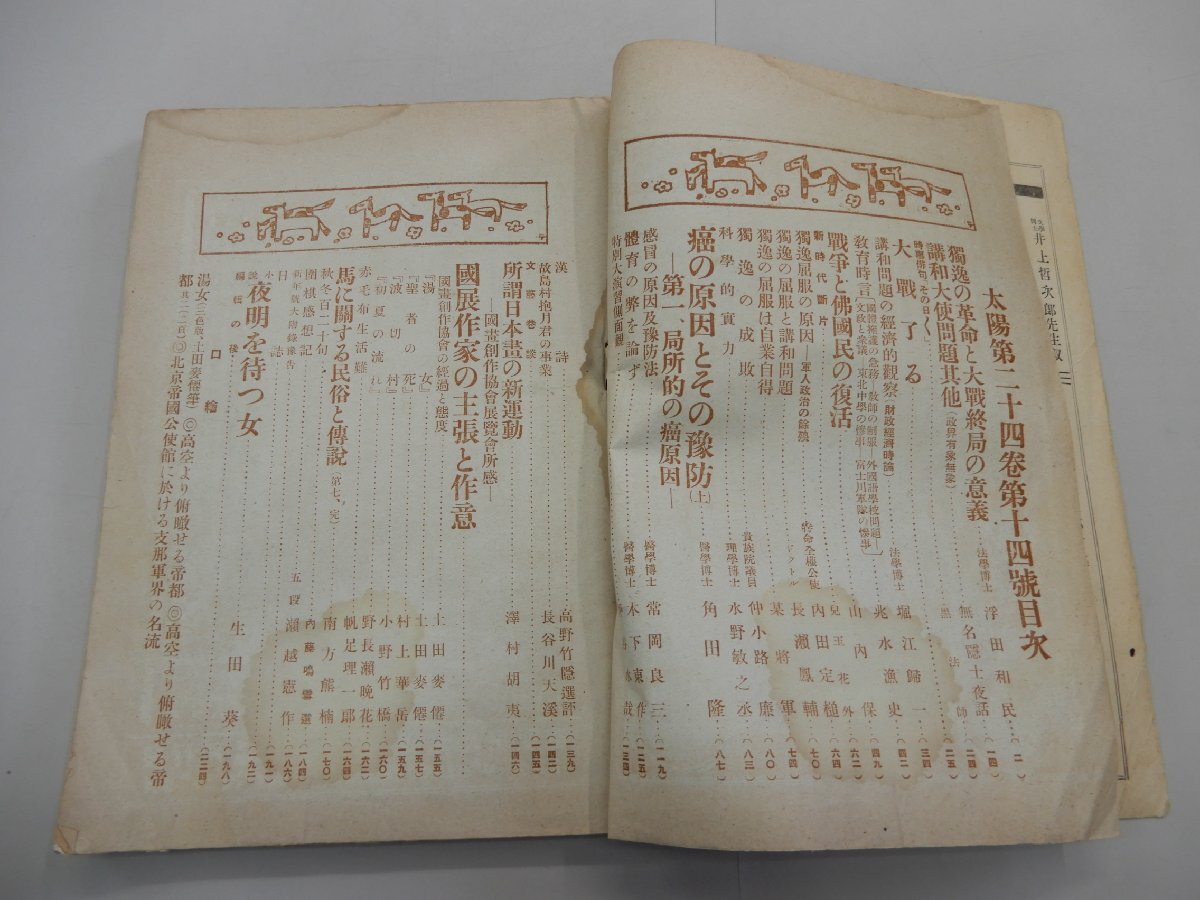 太陽第二十四卷第十四號目次
獨逸の革命と大戰終局の意義 法學博士 浮田和民 (二)
講和大使問題其他(政界有象無象) 無名隱士夜話 (一四)
時事俳句 その日〱 黑法師 (二五)
大戰了る (三四)
講和問題の經濟的觀察(財政經濟時論) 法學博士 堀江歸一 (四二)
兆水漁史 (四九)
戰爭と佛國民の復活 山內保 (六二)
新時代斷片 兒玉花外 (六六)
獨逸屈服の原因―軍人政治の餘殃 特命全權公使 內田定槌 (七〇)
獨逸の屈服と講和問題 ドクトル 長瀨鳳輔 (七四)
獨逸の屈服は自業自得 某將軍
獨逸の成敗 貴族院議員 仲小路廉 (八〇)
科學的實力 理學博士 水野敏之丞 (八三)
癌の原因とその豫防(上) 醫學博士 角田隆 (八七)
―第一、局所的の癌原因―
感冒の原因及豫防法 醫學博士 常岡良三 (一一九)
體育の弊を論ず 醫學博士 木下東作 (一二五)
特別大演習側面觀 (一三四)
漢詩 高野竹隱選評 (一三九)
故島村抱月君の事業 長谷川天溪 (一四二)
文藝卷談 (一四五)
所謂日本畫の新運動 澤村胡夷 (一四六)
―國畫創作協會展覽會所感―
國展作家の主張と作意
國畫創作協會の經過と態度 土田麥僊 (一五五)
『湯女』 土田麥僊
『聖者の死』 村上華岳 (一五九)
『波切村』 小野竹橋 (一六〇)
『初夏の流れ』 野長瀨晚花 (一六二)
赤毛布生活難 帆足理一郎 (一六四)
馬に關する民俗と傳說(第七、完) 南方熊楠 (一七〇)
秋冬百二十句 內藤鳴雪選 (一八四)
圍棋感想記 五段 瀨越憲作 (一八六)
新年號大附錄豫告
日誌 (一九二)
小說 夜明を待つ女 生田葵 (一九八)
編輯の後 (二二四)
口繪
湯女(三色版・土田麥僊筆) ◎高空より俯瞰せる帝都 ◎高空より俯瞰せる帝
都其二(二頁) ◎北京帝國公使館に於ける支那軍界の名流
文學博士 井上哲次郎先生叙